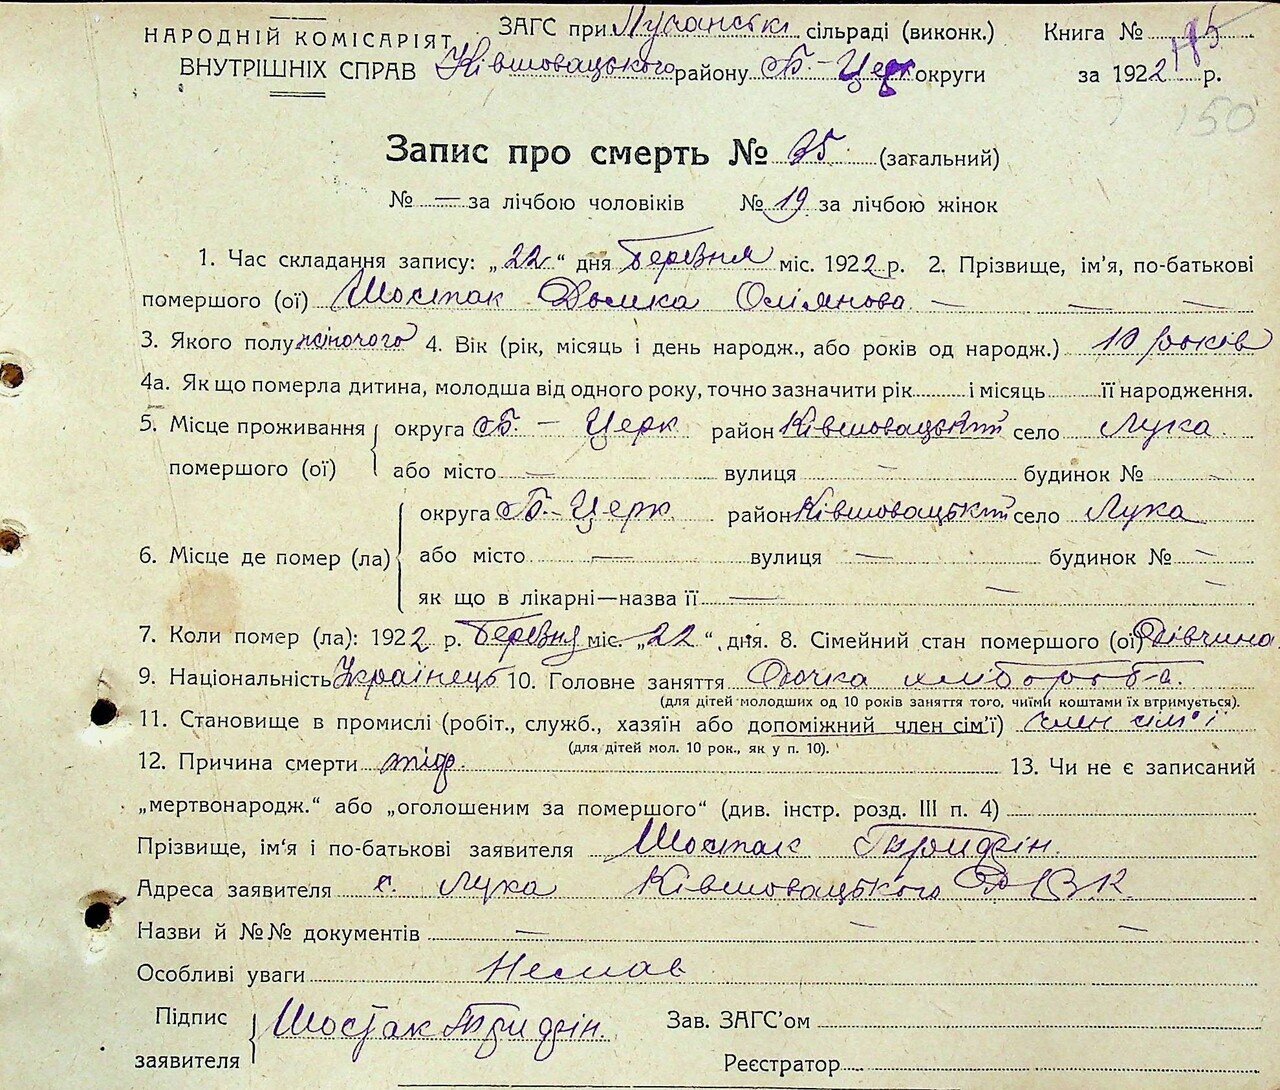 НАРОДНІЙ КОМІСАРІЯТ
ВНУТРІШНІХ СПРАВ
ЗАГС при Лучанські сільраді (виконк.) Книга №
Ківшовацького району Б.-Церк округи за 1922 р.
195
150
Запис про смерть № 25 (загальний)
№ — за лічбою чоловіків № 19 за лічбою жінок
1. Час складання запису: „22“ дня Березня міс. 1922 р. 2. Прізвище, ім'я, по-батькові
помершого (ої) Шостак Домка — — —
3. Якого полу жіночого 4. Вік (рік, місяць і день народж., або років од народж.) 10 років
4а. Як що померла дитина, молодша від одного року, точно зазначити рік і місяць її народження.
5. Місце проживання помершого (ої) округа Б. - Церк район Ківшовацький село Лука
або місто — вулиця — будинок № —
6. Місце де помер (ла) округа Б.-Церк район Ківшовацький село Лука
або місто — вулиця — будинок № —
як що в лікарні—назва її — — —
7. Коли помер (ла): 1922 р. Березня міс. „22“ дня. 8. Сімейний стан помершого (ої) Дівчина
9. Національність Українець 10. Головне заняття Дочка хлібороба.
(для дітей молодших од 10 років заняття того, чиїми коштами їх втримується).
11. Становище в промислі (робіт., служб., хазяїн або допоміжний член сім'ї) член сім'ї
(для дітей мол. 10 рок., як у п. 10).
12. Причина смерти тіф. 13. Чи не є записаний
„мертвонародж.“ або „оголошеним за помершого“ (див. інстр. розд. III п. 4)
Прізвище, ім'я і по-батькові заявителя Шостак
Адреса заявителя с. Лука Ківшовацького РВК
Назви й №№ документів — — —
Особливі уваги Немав
Підпис заявителя Шостак
Зав. ЗАГС'ом
Реєстратор